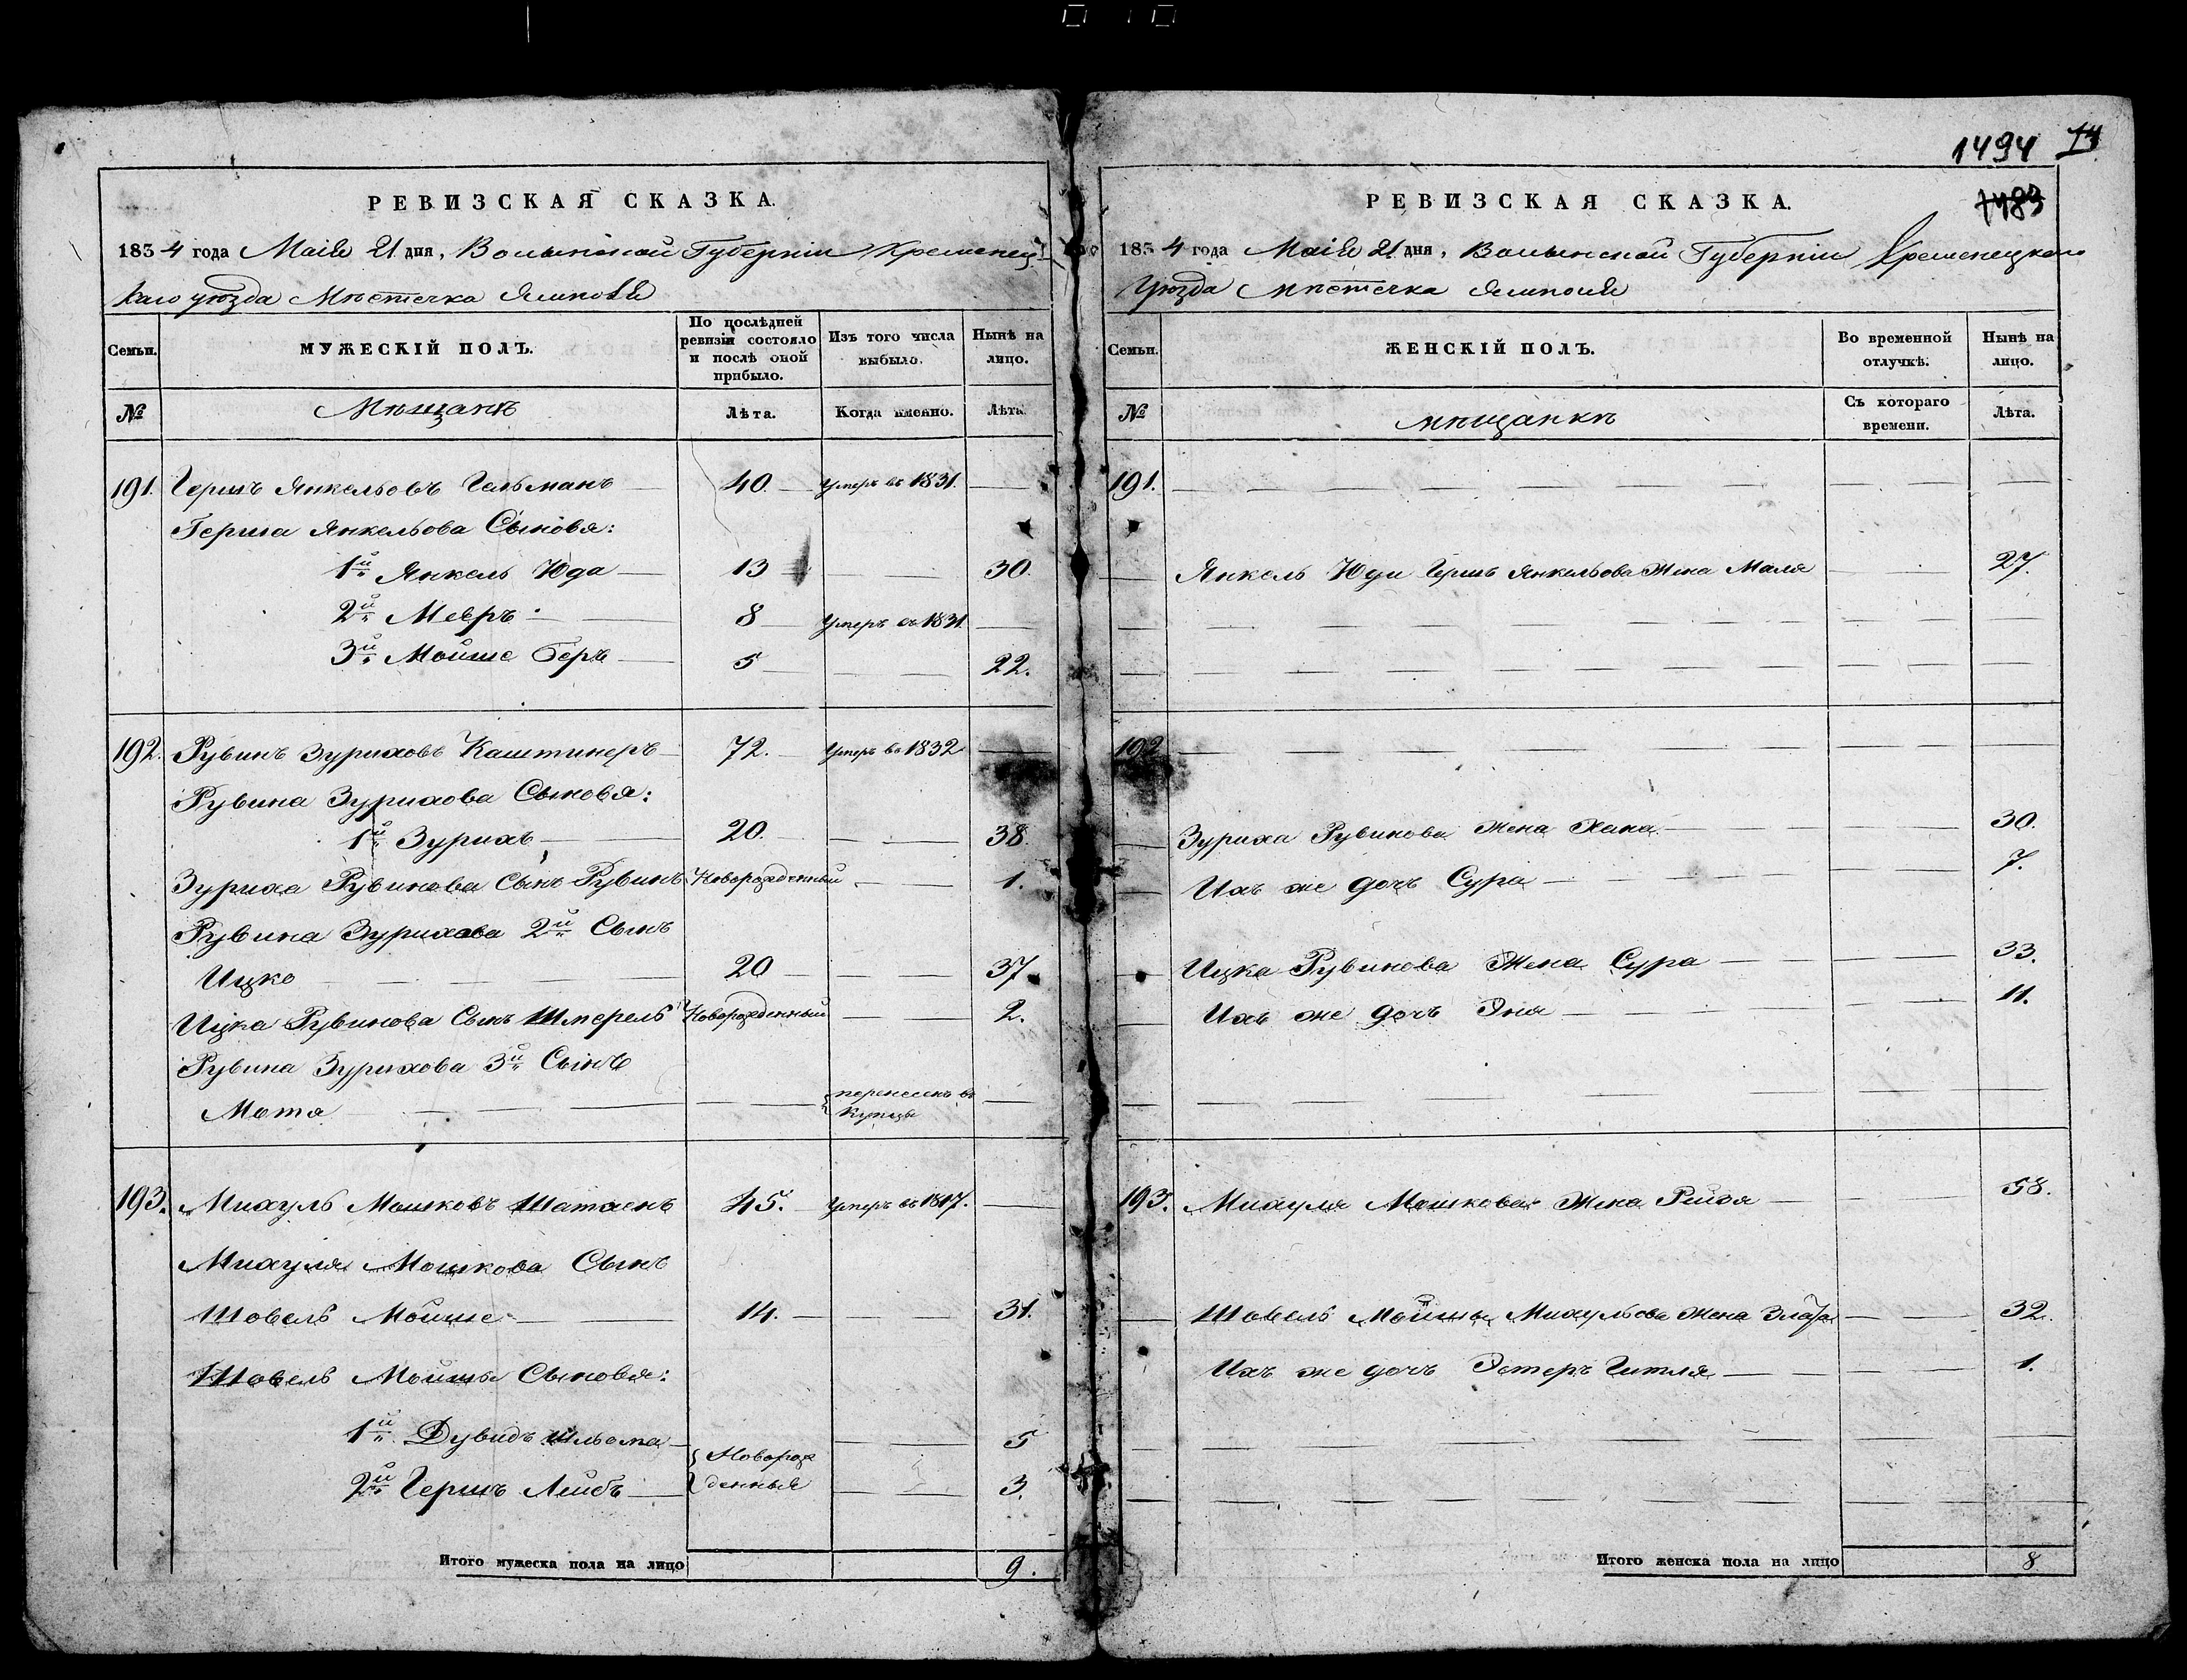 1494 14
1483
РЕВИЗСКАЯ СКАЗКА.
1834 года Маія 21 дня, Волынской Губерніи Кременец-
каго уѣзда Мѣстечка Ямполя
Семьи. МУЖЕСКІЙ ПОЛЪ. По послѣдней ревизіи состояло и послѣ оной прибыло. Изъ того числа выбыло. Нынѣ на лицо.
№ Мѣщанъ Лѣта. Когда именно. Лѣта.
191. Гершъ Янкельовъ Гельманъ 40. Умеръ въ 1831.
Герша Янкельова Сыновя:
1й Янкель Юда 13 30.
2й Мееръ 8 Умеръ въ 1831.
3й Мойше Беръ 5 22.
192. Рувинъ Зуриховъ Каштинеръ 72. Умеръ въ 1832
Рувина Зурихова Сыновя:
1й Зурихъ 20. 38.
Зуриха Рувинова Сынъ Рувинъ Новорожденный 1.
Рувина Зурихова 2й Сынъ
Ицко 20 37.
Ицка Рувинова Сынъ Шмерель Новорожденный 2.
Рувина Зурихова 3й Сынъ
Мотя перенесенъ въ Купцы
193. Михуль Мошковъ 45. Умеръ въ 1847.
Михуля Мошкова Сынъ
Шовель Мойше 14. 31.
Шовель Мойши Сыновя:
1й Дувидъ Шльома Новорож 5
2й Гершъ Лейбъ денныя 3.
Итого мужеска пола на лицо 9.
РЕВИЗСКАЯ СКАЗКА.
1854 года Маія 21 дня, Волынской Губерніи Кременецкаго
Уѣзда мѣстечка Ямполя
Семьи. ЖЕНСКІЙ ПОЛЪ. Во временной отлучкѣ. Нынѣ на лицо.
№ мѣщанкъ Съ котораго времени. Лѣта.
191.
Янкель Юди Гершъ Янкельова Жена Маля 27.
192
Зуриха Рувинова Жена Хана 30.
Ихъ же дочь Сура 7.
Ицка Рувинова Жена Сура 33.
Ихъ же дочь 11.
193. Михуля Мошкова Жена Рейзя 58.
Шовель Мойши Михульова Жена Злата 32.
Ихъ же дочь Эстеръ Гитля 1.
Итого женска пола на лицо 8